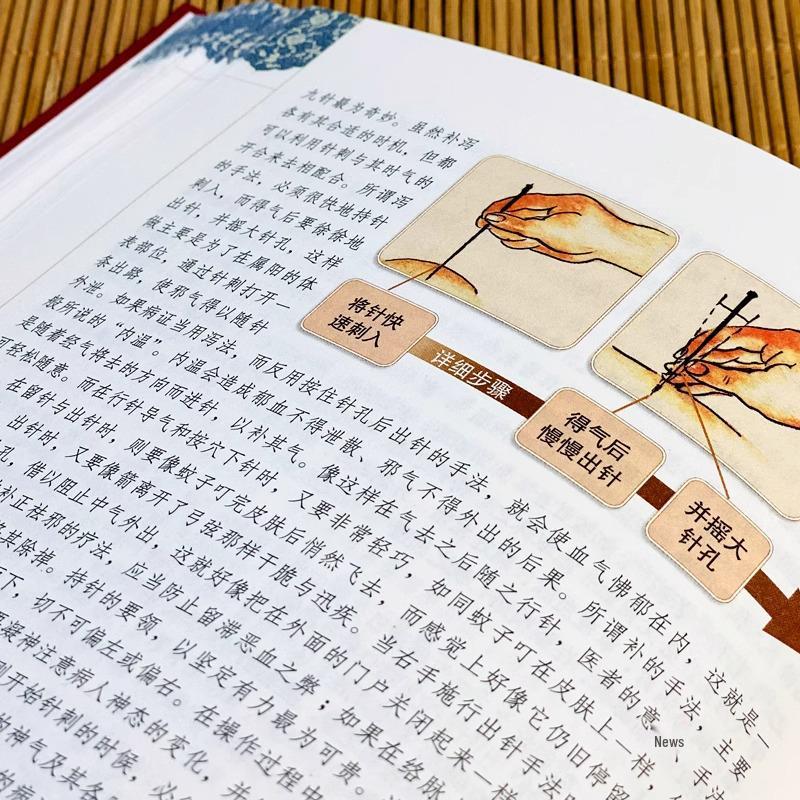 九针最为奇妙。虽然补泻
各有其合适的时机，但都
可以利用针刺与其时气的
开合来去相配合。所谓泻
的手法，必须很快地持针
刺入，而得气后要徐徐地
出针，并摇大针孔，这样
做主要是为了在属阳的体
表部位，通过针刺打开一
条出路，使邪气得以随针
外泄。如果病证当用泻法，而反用按住针孔后出针的手法，就会使血气怫郁在内，这就是一
般所说的“内温”。内温会造成郁血不得泄散、邪气不得外出的后果。所谓补的手法，主要
是随着经气将去的方向而进针，以补其气。像这样在气去之后随之行针，医者的意、手法
可轻松随意。而在行针导气和按穴下针时，又要非常轻巧，如同蚊子叮在皮肤上一样，
在留针与出针时，则要像蚊子叮完皮肤后悄然飞去，而感觉上好像它仍旧停留
出针时，又要像箭离开了弓弦那样干脆与迅疾。当右手施行出针手法
孔，借以阻止中气外出，这就好像把在外面的门户关闭起来一样
补正祛邪的疗法，应当防止留滞恶血之弊；如果在络脉
将其除掉。持针的要领，以坚定有力最为可贵。
下，切不可偏左或偏右。在操作过程中
凝神注意病人神态的变化，并
开始针刺的时候，必
的神气及其各
将针快
速刺入
详细步骤
得气后
慢慢出针
并摇大
针孔
News